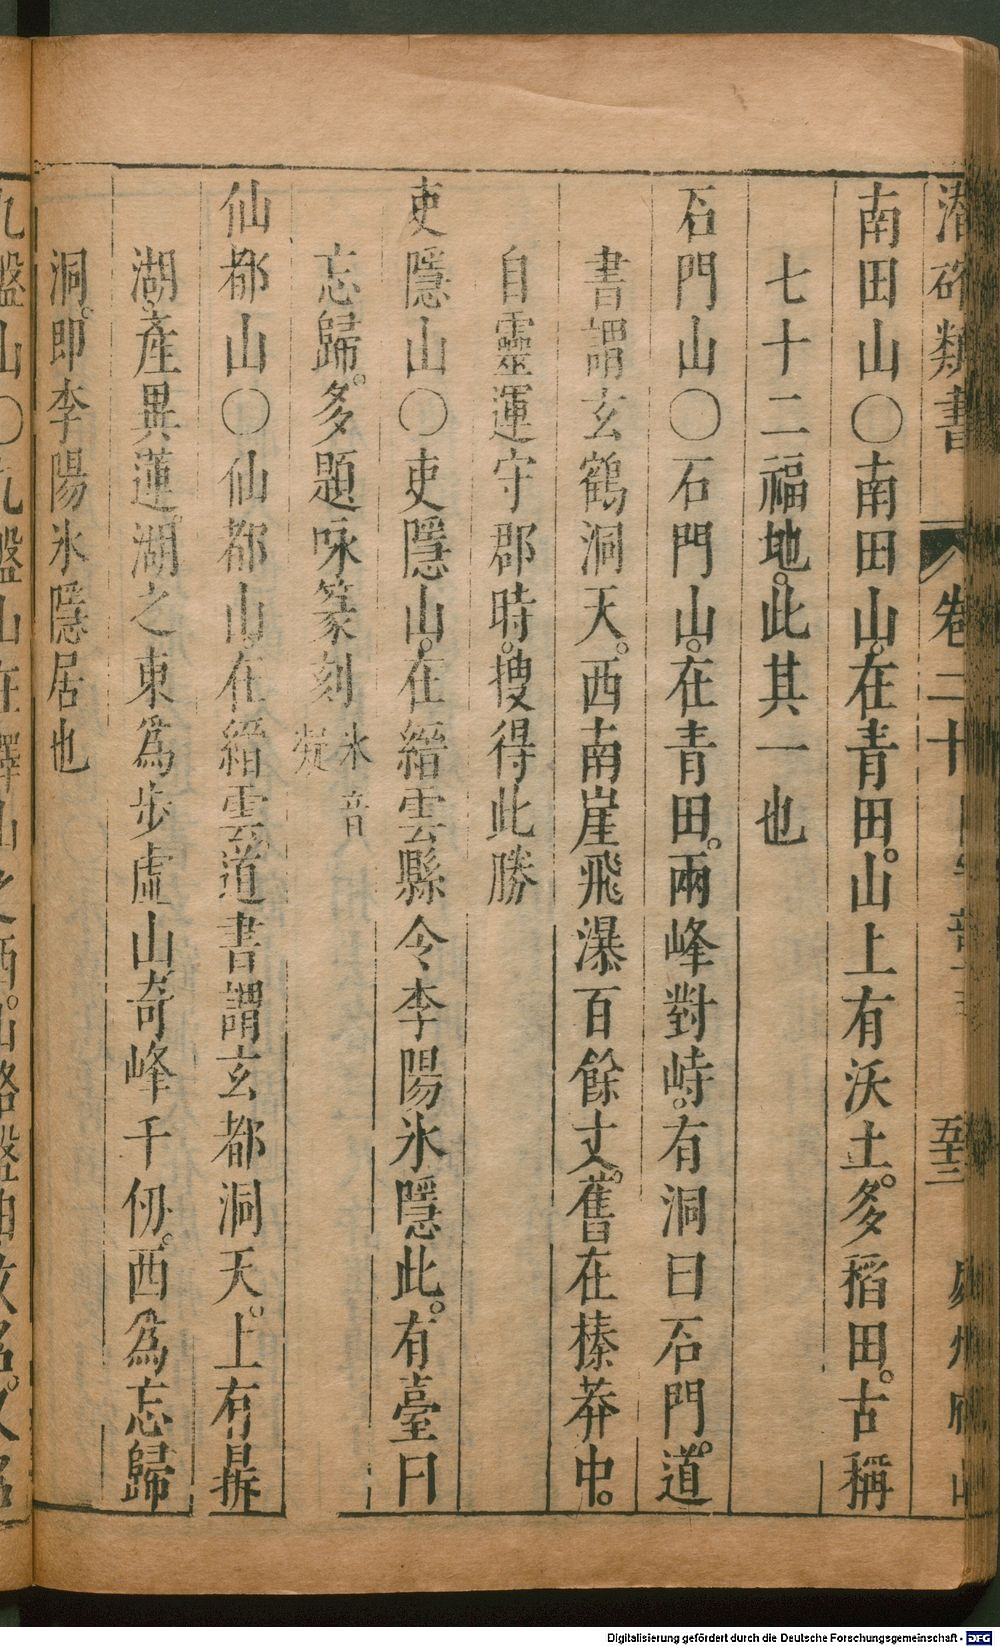 潛確類書 卷二十 五十三 處州府山
南田山○南田山。在青田。山上有沃土。多稻田。古稱
七十二福地。此其一也
石門山○石門山。在青田。兩峰對峙。有洞曰石門。道
書謂玄鶴洞天。西南崖飛瀑百餘丈。舊在榛莽中。
自靈運守郡時。搜得此勝
吏隱山○吏隱山。在縉雲縣令李陽氷隱此。有臺曰
忘歸。多題咏篆刻 氷音凝
仙都山○仙都山。在縉雲。道書謂玄都洞天。上有鼎
湖。產異蓮。湖之東為步虛山奇峰千仞。西為忘歸
洞。即李陽氷隱居也
九盤山○九盤山在 山之西。山路盤曲故名。又名
Digitalisierung gefördert durch die Deutsche Forschungsgemeinschaft - DFG